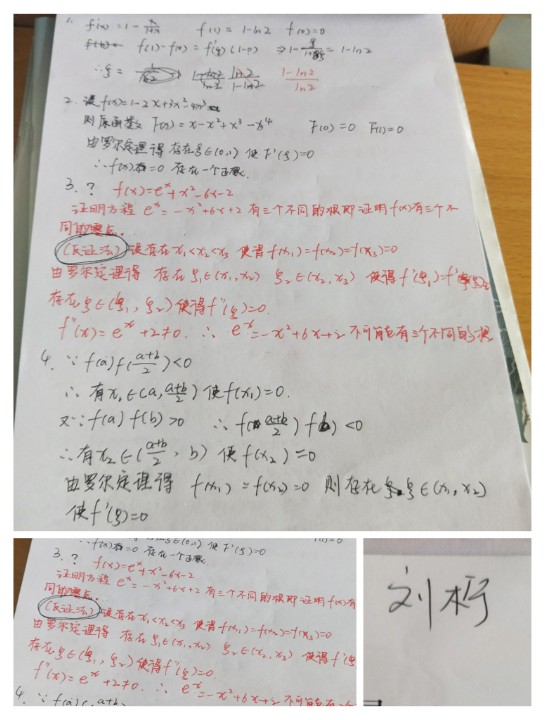 1. f'(x) = 1 - f(1) = 1-ln2 f(0)=0
f(1) - f(0) = f'(ξ)(1-0) ⇒ 1- = 1-ln2
∴ξ = 1-ln2 / ln2
2. 设 f(x)=1-2x+3x²-4x³
则原函数 F(x) = x-x²+x³-x⁴ F(0)=0 F(1)=0
由罗尔定理得 存在ξ∈(0,1) 使F'(ξ)=0
∴f(x)=0 存在一个正根
3. ? f(x)=eˣ+x²-6x-2
证明方程 eˣ=-x²+6x+2 有三个不同的根即证明f(x)有三个不
同的零点.
(反证法) 设存在x₁<x₂<x₃ 使得f(x₁)=f(x₂)=f(x₃)=0
由罗尔定理得 存在 ξ₁∈(x₁,x₂) ξ₂∈(x₂,x₃) 使得f'(ξ₁)=f'
存在ξ∈(ξ₁, ξ₂)使得f''(ξ)=0.
f''(x)=eˣ+2≠0. ∴ eˣ=-x²+6x+2 不可能有三个不同的根
4. ∵ f(a)f(a+b/2)<0
∴ 有x₁∈(a, a+b/2) 使f(x₁)=0.
又∵f(a)f(b)>0 ∴f(a+b/2)f(b)<0
∴有x₂∈(a+b/2, b) 使f(x₂)=0
由罗尔定理得 f(x₁)=f(x₂)=0 则存在ξ∈(x₁,x₂)
使f'(ξ)=0
∴f(x)=0 存在一个正根
3. ? f(x)=eˣ+x²-6x-2
证明方程 eˣ=-x²+6x+2 有三个不同的根即证明f(x)有
同的零点.
(反证法) 设存在x₁<x₂<x₃ 使得f(x₁)=f(x₂)=f(x₃)=0
由罗尔定理得 存在 ξ₁∈(x₁,x₂) ξ₂∈(x₂,x₃) 使得f'(ξ
存在ξ∈(ξ₁, ξ₂)使得f''(ξ)=0.
f''(x)=eˣ+2≠0. ∴ eˣ=-x²+6x+2 不可能有三个
4. ∵ f(a)f(a+b
刘柠